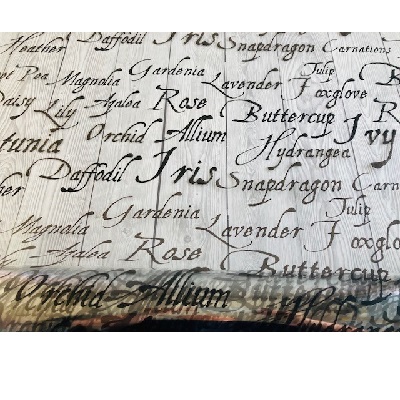 Heather Daffodil Iris Snapdragon Carnations
Pea Magnolia Gardenia Lavender Tulip
Foxglove
Daisy Lily Azalea Rose Buttercup
Orchid Allium Ivy
Hydrangea
Daffodil Iris Snapdragon
Magnolia Gardenia Lavender Tulip
Azalea Rose
Buttercup
Orchid Allium